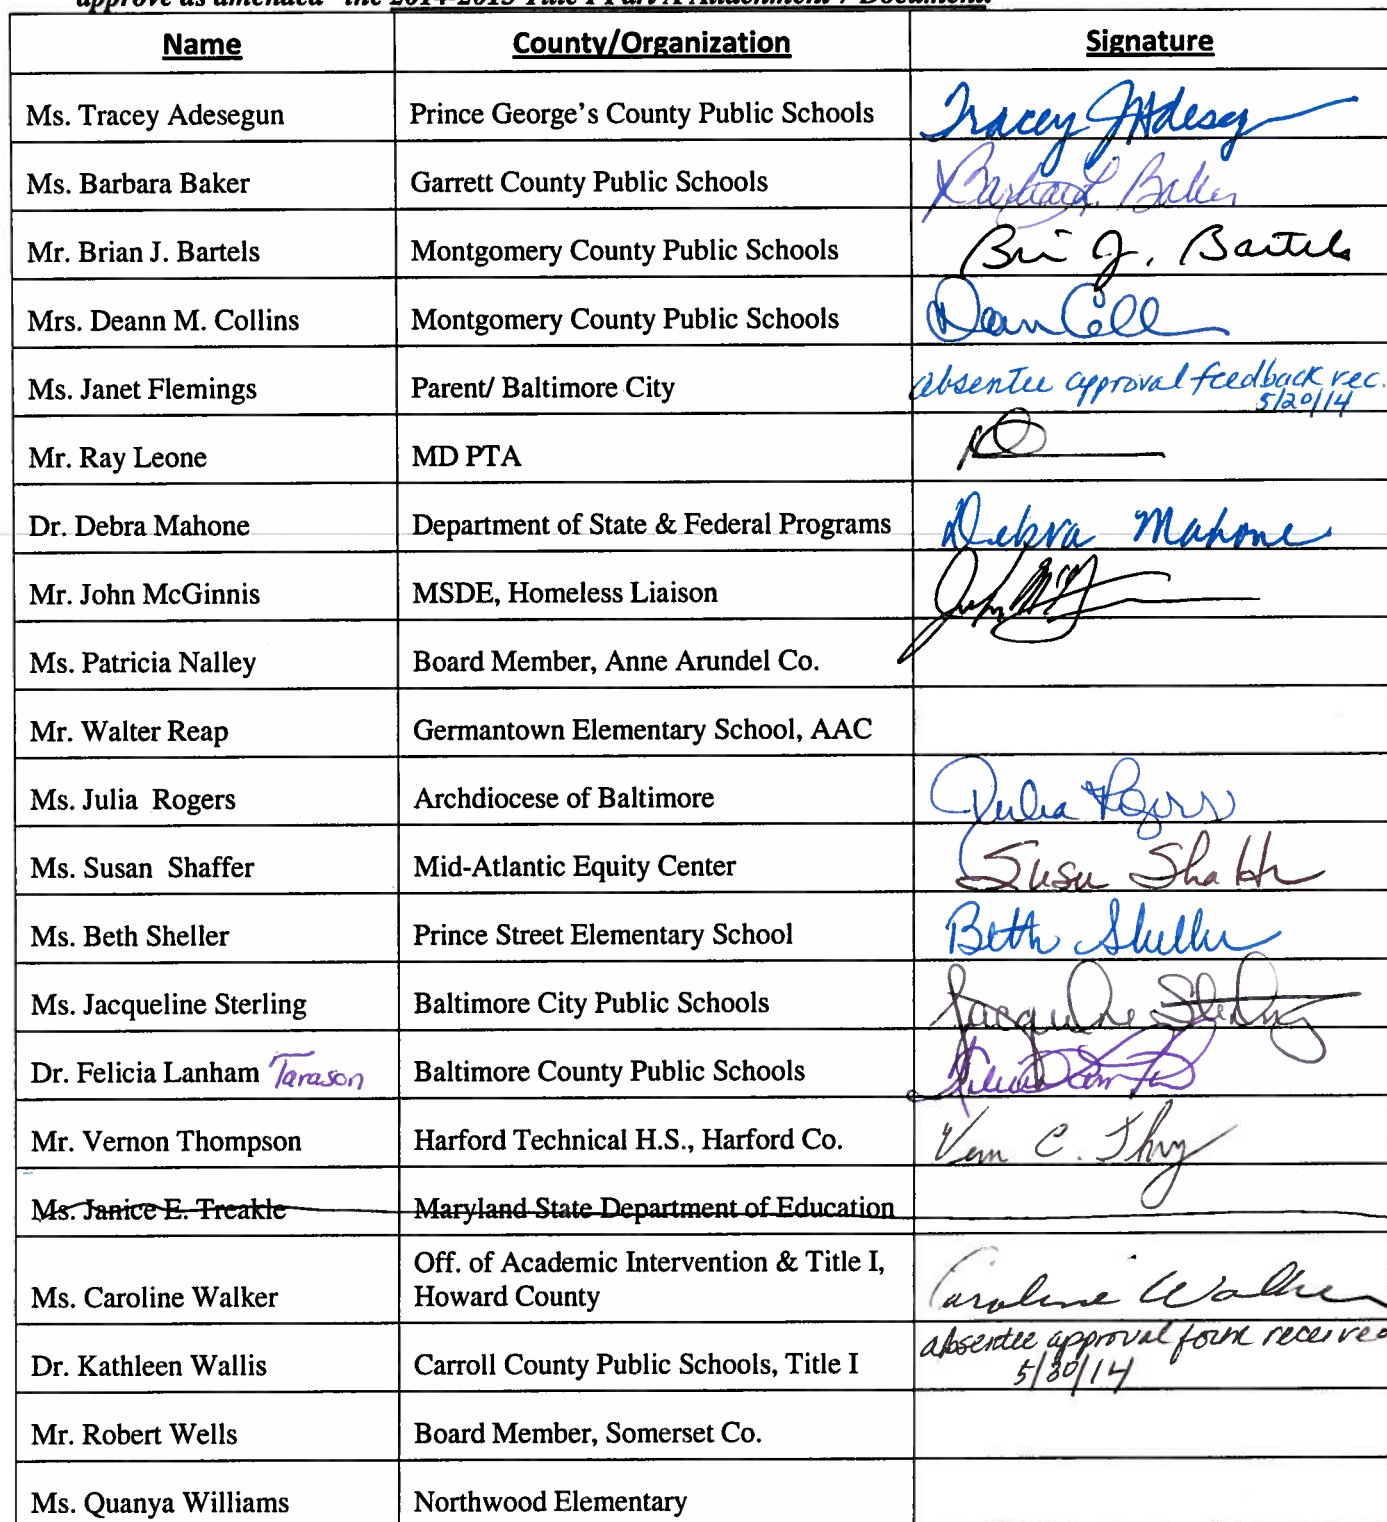 approve as amended" the 2014-2015 Title I Part A Attachment 7 Document.
Name County/Organization Signature
Ms. Tracey Adesegun Prince George's County Public Schools Tracey J Adeseg
Ms. Barbara Baker Garrett County Public Schools Barbara L. Baker
Mr. Brian J. Bartels Montgomery County Public Schools Bri J. Bartels
Mrs. Deann M. Collins Montgomery County Public Schools Dean Coll
Ms. Janet Flemings Parent/ Baltimore City absentee approval feedback rec.
5/20/14
Mr. Ray Leone MD PTA
Dr. Debra Mahone Department of State & Federal Programs Debra Mahone
Mr. John McGinnis MSDE, Homeless Liaison
Ms. Patricia Nalley Board Member, Anne Arundel Co.
Mr. Walter Reap Germantown Elementary School, AAC
Ms. Julia Rogers Archdiocese of Baltimore Julia Rogers
Ms. Susan Shaffer Mid-Atlantic Equity Center Susan Shaffer
Ms. Beth Sheller Prince Street Elementary School Beth Sheller
Ms. Jacqueline Sterling Baltimore City Public Schools Jacqueline Sterling
Dr. Felicia Lanham Tarason Baltimore County Public Schools
Mr. Vernon Thompson Harford Technical H.S., Harford Co. Vern C. Thy
Ms. Janice E. Treakle Maryland State Department of Education
Off. of Academic Intervention & Title I,
Ms. Caroline Walker Howard County Caroline Walker
Dr. Kathleen Wallis Carroll County Public Schools, Title I absentee approval form received
5/30/14
Mr. Robert Wells Board Member, Somerset Co.
Ms. Quanya Williams Northwood Elementary